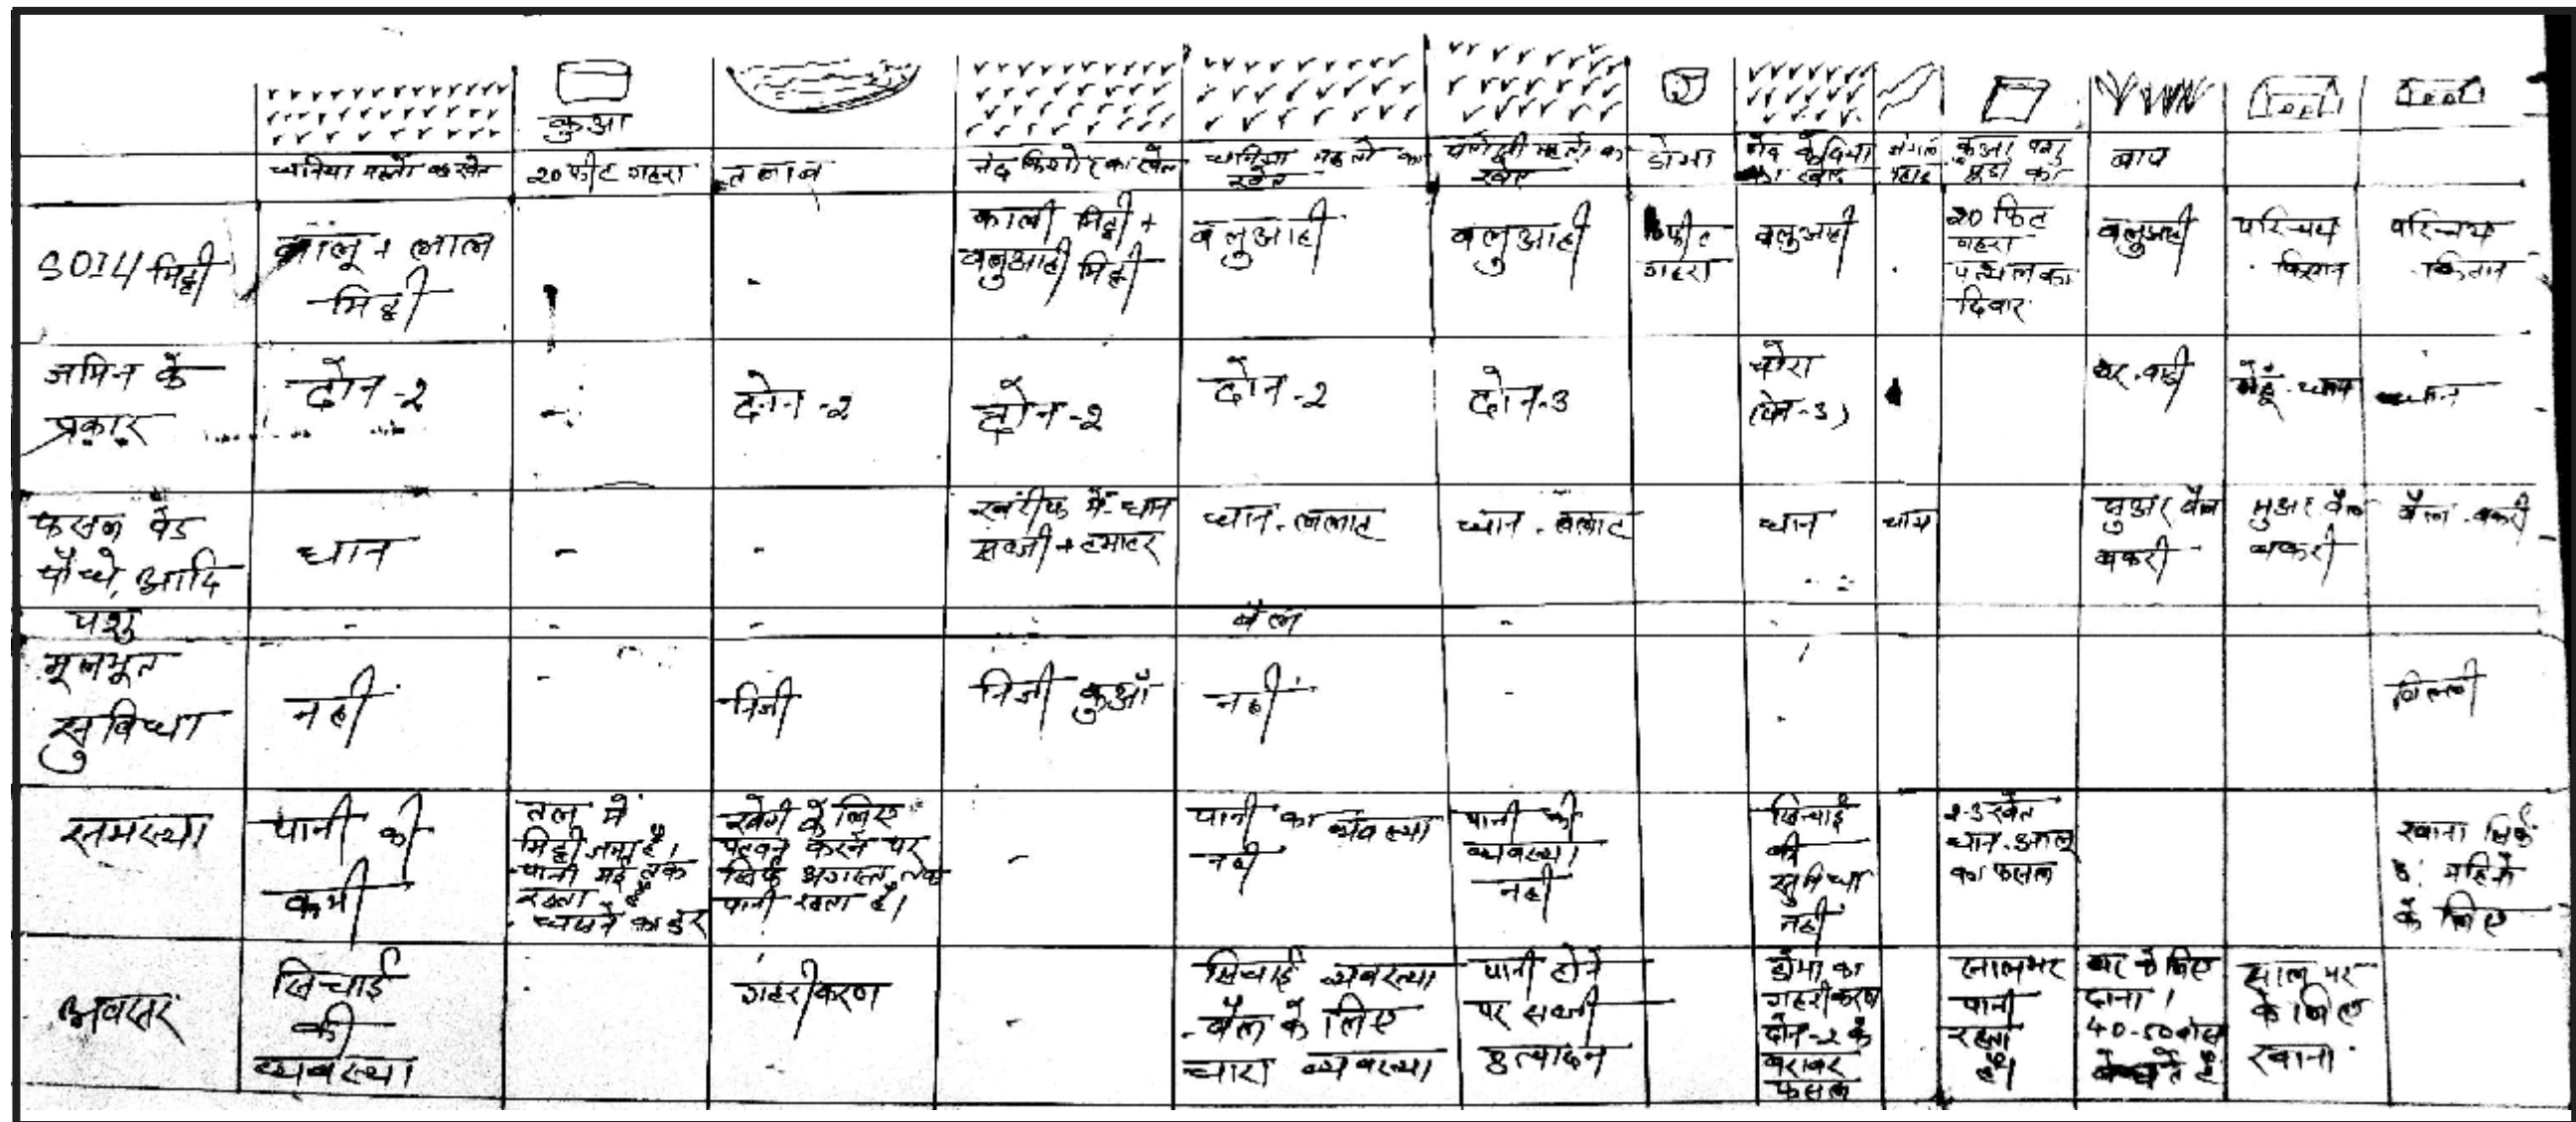 कुआ
धनिया महतो का खेत
20 फीट गहरा
तलाब
नंद किशोर का खेत
धनिया महतो का
खेत
महतो का
खेत
डोभा
जंगल
कुआ
का
बाप
SOIL मिट्टी
बालू + लाल
मिट्टी
-
काली मिट्टी +
बलुआही मिट्टी
बलुआही
बलुआही
फीट
गहरा
बलुआही
20 फिट
गहरा
पत्थल का
दिवार
बलुआही
परिचय
किसान
परिचय
किसान
जमिन के
प्रकार
दोन-2
-
दोन-2
दोन-2
दोन-2
दोन-3
चौरा
(दोन-3)
गेहूँ-धान
धान
फसल पेड
पौधे, आदि
धान
-
-
खरीफ में-धान
सब्जी + टमाटर
धान-
धान-
धान
सुअर बैल
बकरी
सुअर बैल
बकरी
बैल-बकरी
पशु
-
-
-
बैल
-
मूलभूत
सुविधा
नही
-
निजी
निजी कुआँ
नहीं
-
-
समस्या
पानी की
कमी
तल में
मिट्टी जमा है।
पानी मई तक
रहता है
धसने का डर
खेती के लिए
पटवन करने पर
सिर्फ अगस्त तक
पानी रहता है।
-
पानी का व्यवस्था
नही
पानी की
व्यवस्था
नही
सिचाई
की
सुविधा
नहीं
2-3 खेत
धान-आलू
का फसल
खाना सिर्फ
महिने
के लिए
अवसर
सिचाई
की
व्यवस्था
गहरीकरण
-
सिचाई व्यवस्था
-बैल के लिए
चारा व्यवस्था
पानी होने
पर सब्जी
उत्पादन
डोभा का
गहरीकरण
दोन-2 के
बराबर
फसल
सालभर
पानी
रहता
है।
घर के लिए
दाना।
40-50
साल भर
के लिए
खाना